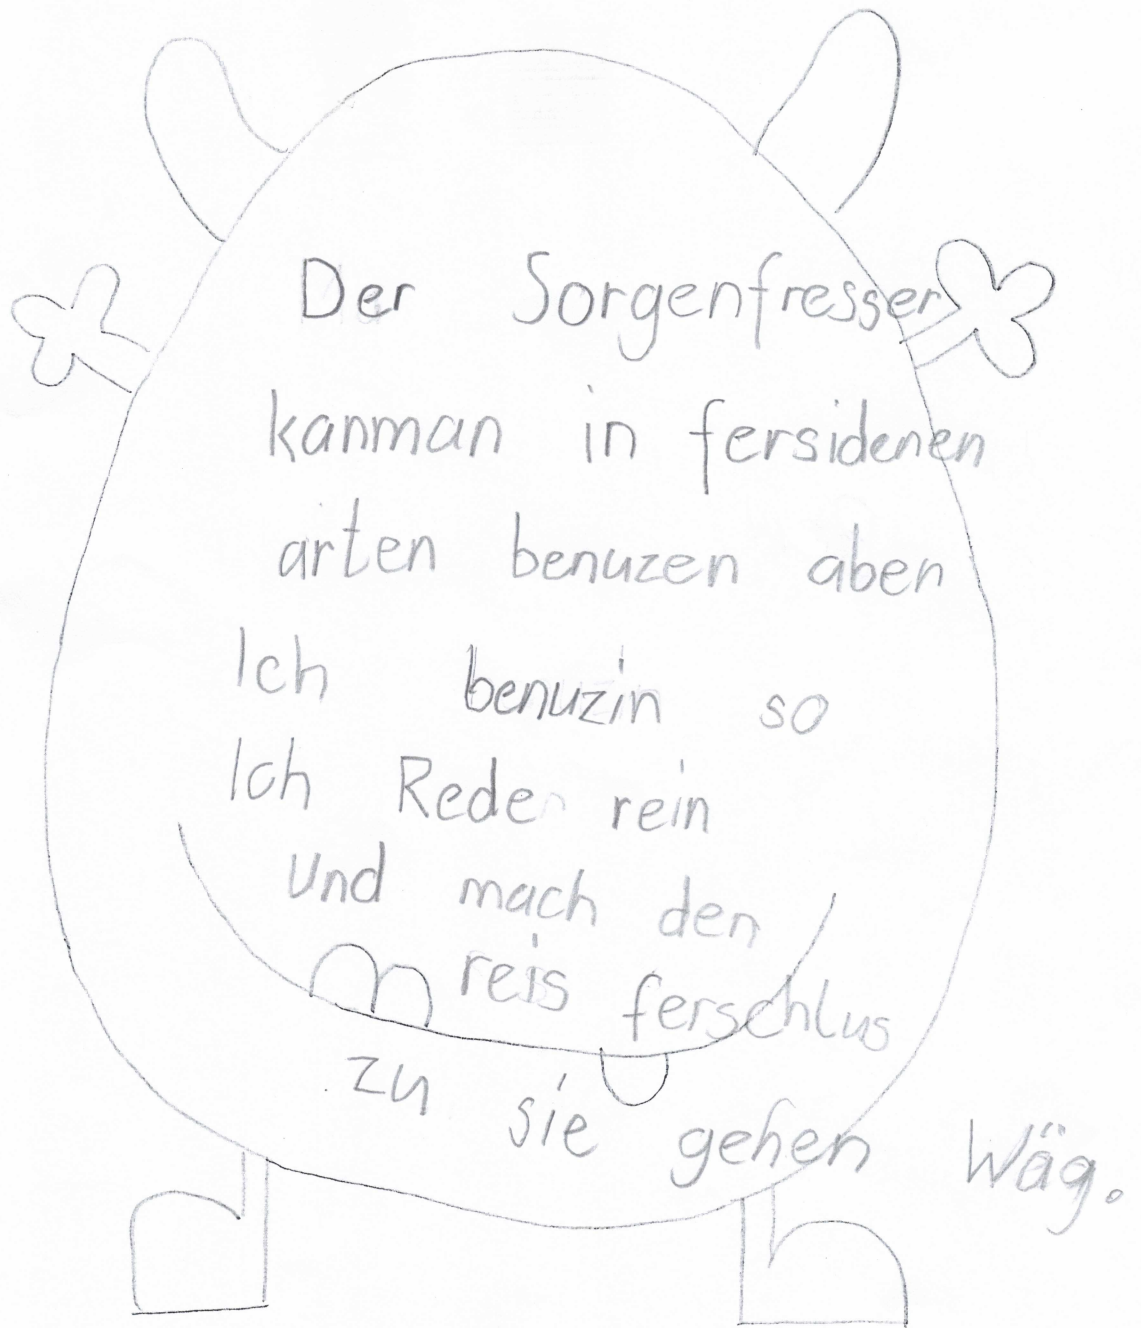 Der Sorgenfresser
kanman in fersidenen
arten benuzen aben
Ich benuzin so
Ich Rede rein
und mach den
reis ferschlus
zu sie gehen Wäg.